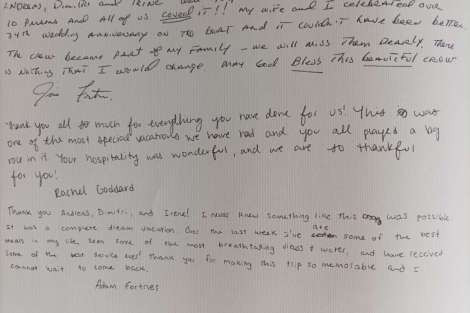 ANDREAS, Dimitris and Irene
10 Person's and All of us loved it!! My wife and I celebrated our
34th wedding anniversary on the boat and it couldn't have been better.
The crew became part of my family - we will miss them dearly. There
is nothing that I would change. May God Bless this beautiful crew
Thank you all so much for everything you have done for us! This was
one of the most special vacations we have had and you all played a big
role in it. Your hospitality was wonderful, and we are so thankful
for you!
Rachel Goddard
Thank you Andreas, Dimitri, and Irene! I never knew something like this was possible.
It was a complete dream vacation. Over the last week I've eaten some of the best
meals in my life, seen some of the most breathtaking views & water, and have received
some of the best service ever! Thank you for making this trip so memorable and I
cannot wait to come back.
Adam Fortner